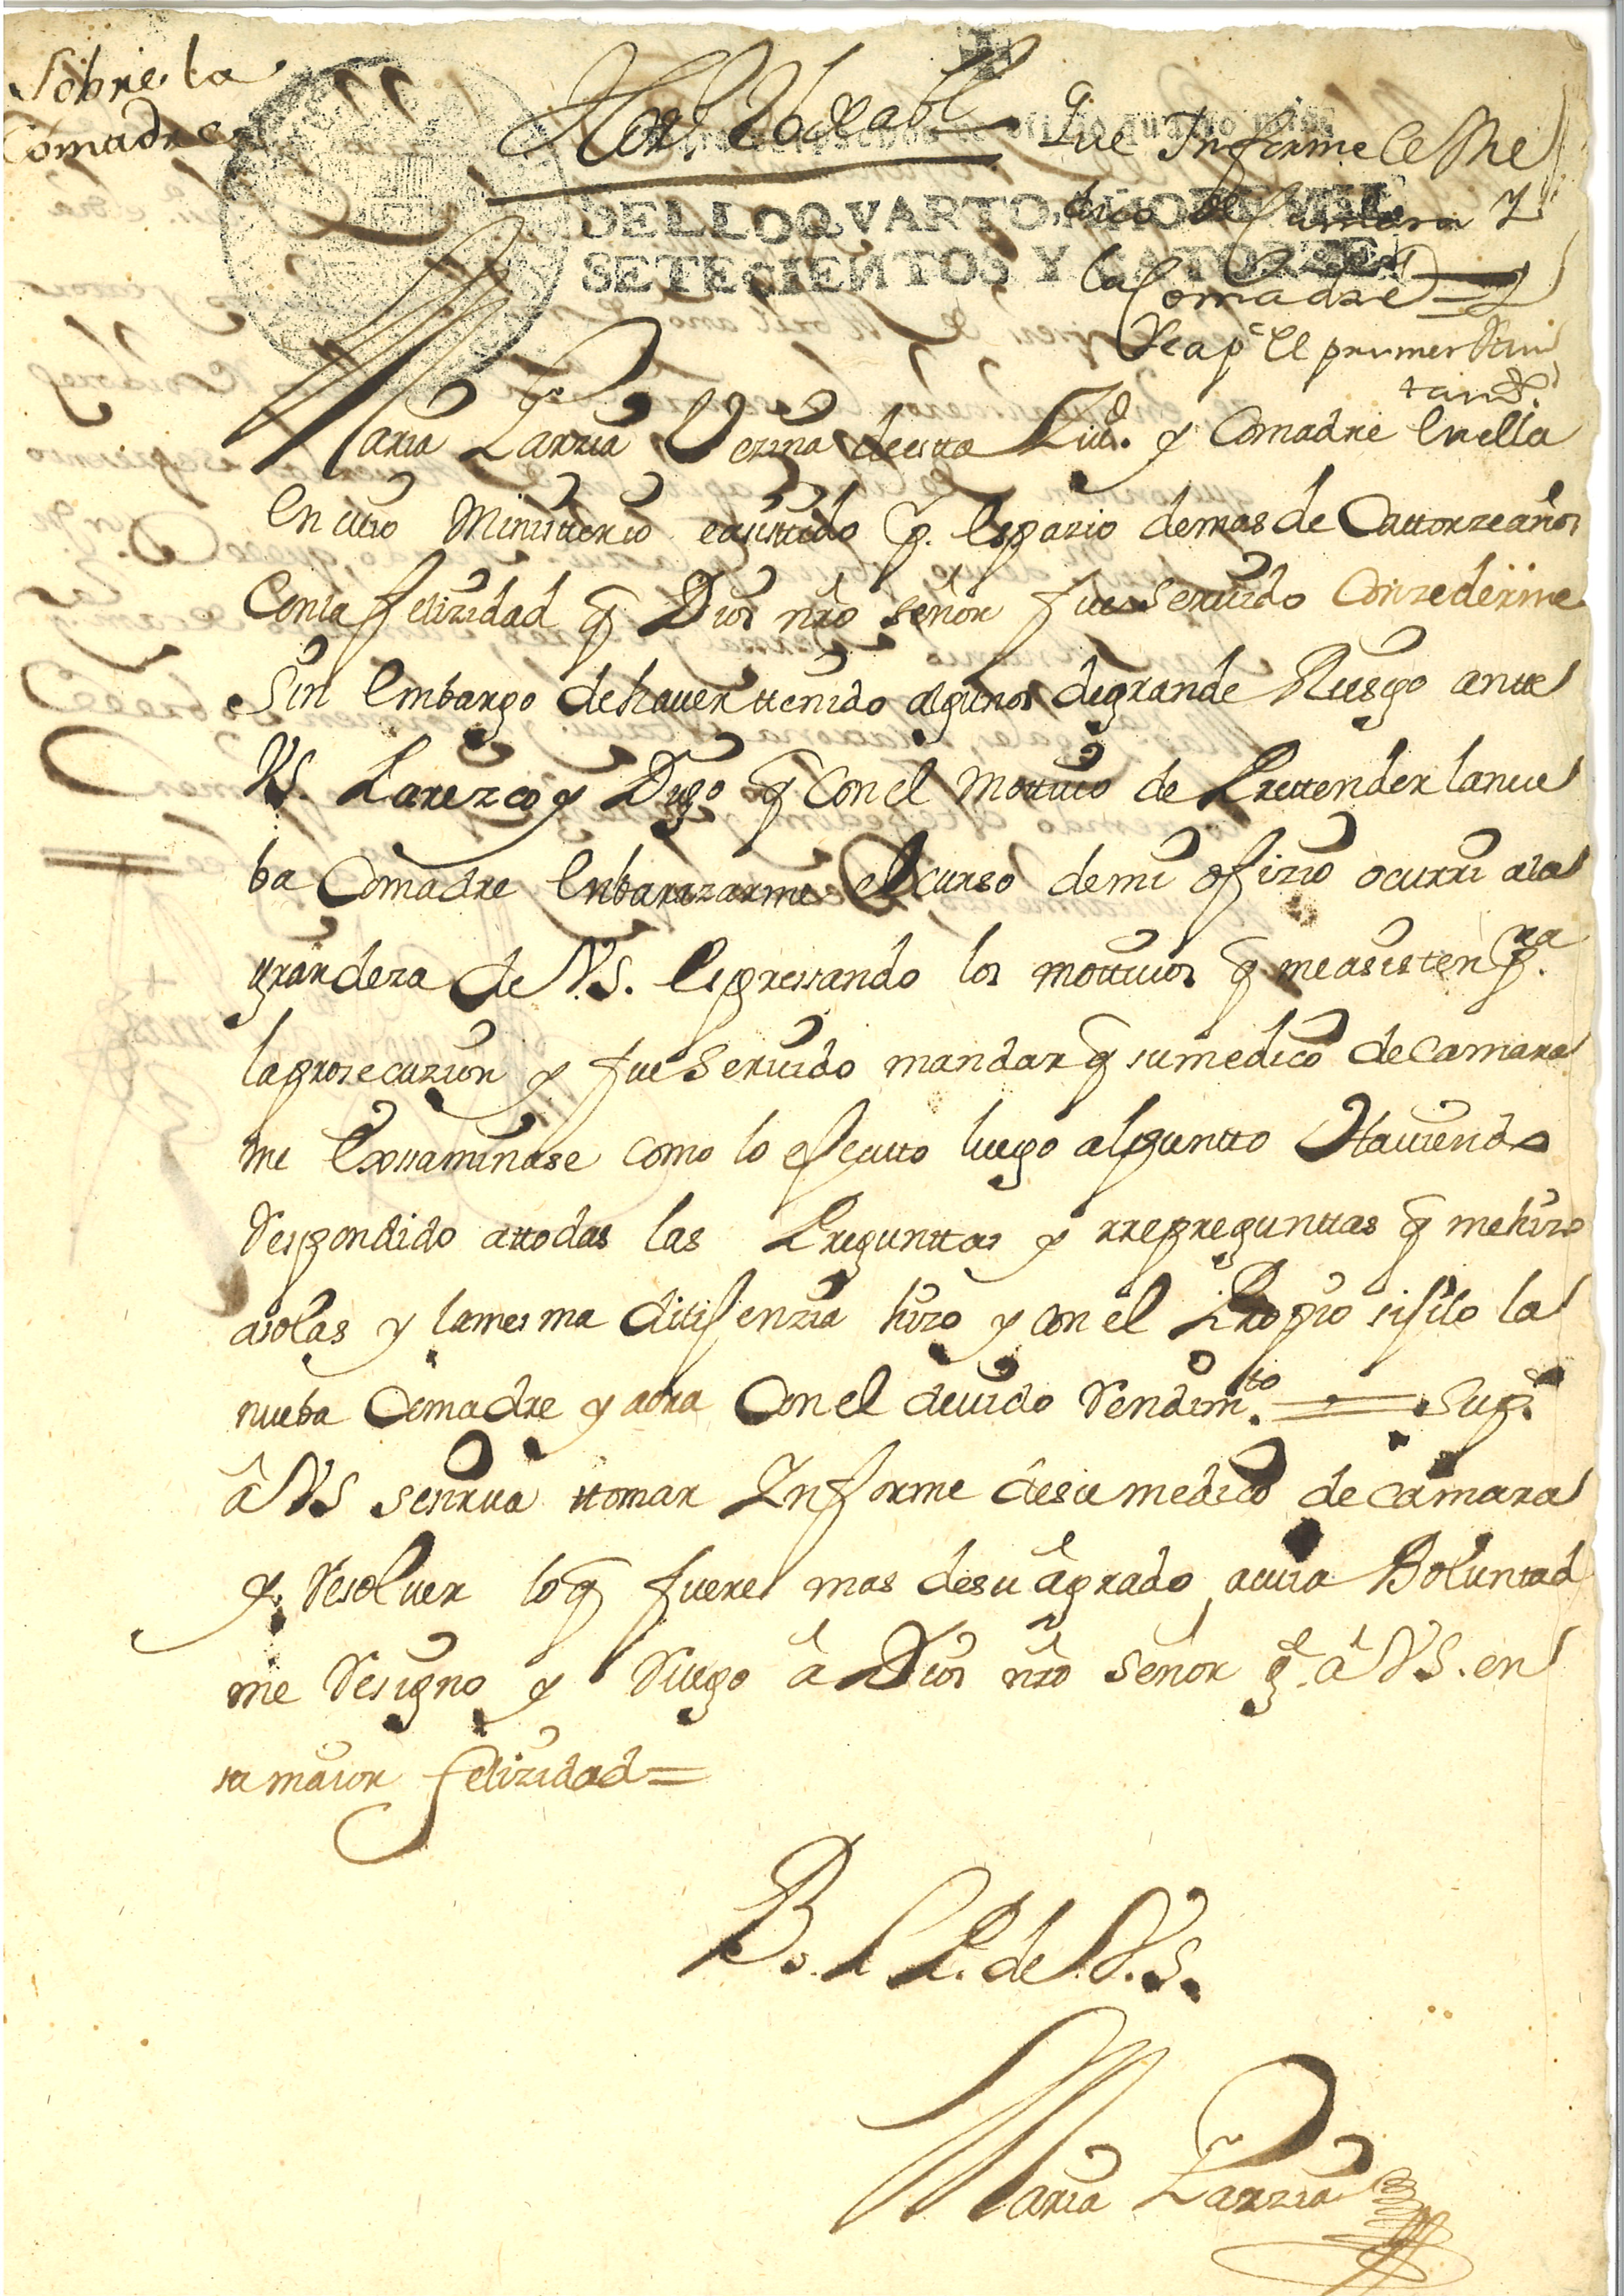 Sobre la
Comadre
Que Informe el Me
dico de Camara y
la Comadre
Vea pª el primer Aiun
tamᵒ
SELLO QVARTO, AÑO DE MIL
SETECIENTOS Y CATORZE
Maria Garzia Vezina de esta Ziud. y Comadre en ella
en cuio Ministterio e asisttido p. espazio de mas de Cattorze años
Con la felizidad q Dios nrõ señor fue seruido Conzederme
Sin embargo de hauer ttenido algunos de grande Riesgo antte
VS. Parezco y Digo q con el mottiuo de Prettender la nue
ba Comadre enbarazarme el curso de mi ofizio ocurri a la
grandeza de VS. espressando los mottiuos q me asisten pra.
la prosecuzion y fue Seruido mandar q su medico de camara
me exsaminase como lo efecutto luego al puntto Hauiendo
Respondido a ttodas las Preguntas y rrepreguntas q me hizo
a solas y la mesma dilijenzia hizo y con el Propio sijilo la
nueba Comadre y aora Con el deuido Rendimto. = Supᶜᵒ
â VS se sirua ttomar Informe de su medico de camara
y Resoluer lo q fuere mas de su agrado a cuia Boluntad
me Resigno y Ruego â Dios nrõ señor gᵉ. â VS. en
su maior felizidad =
B. L P. de V. S.
Maria Garzia